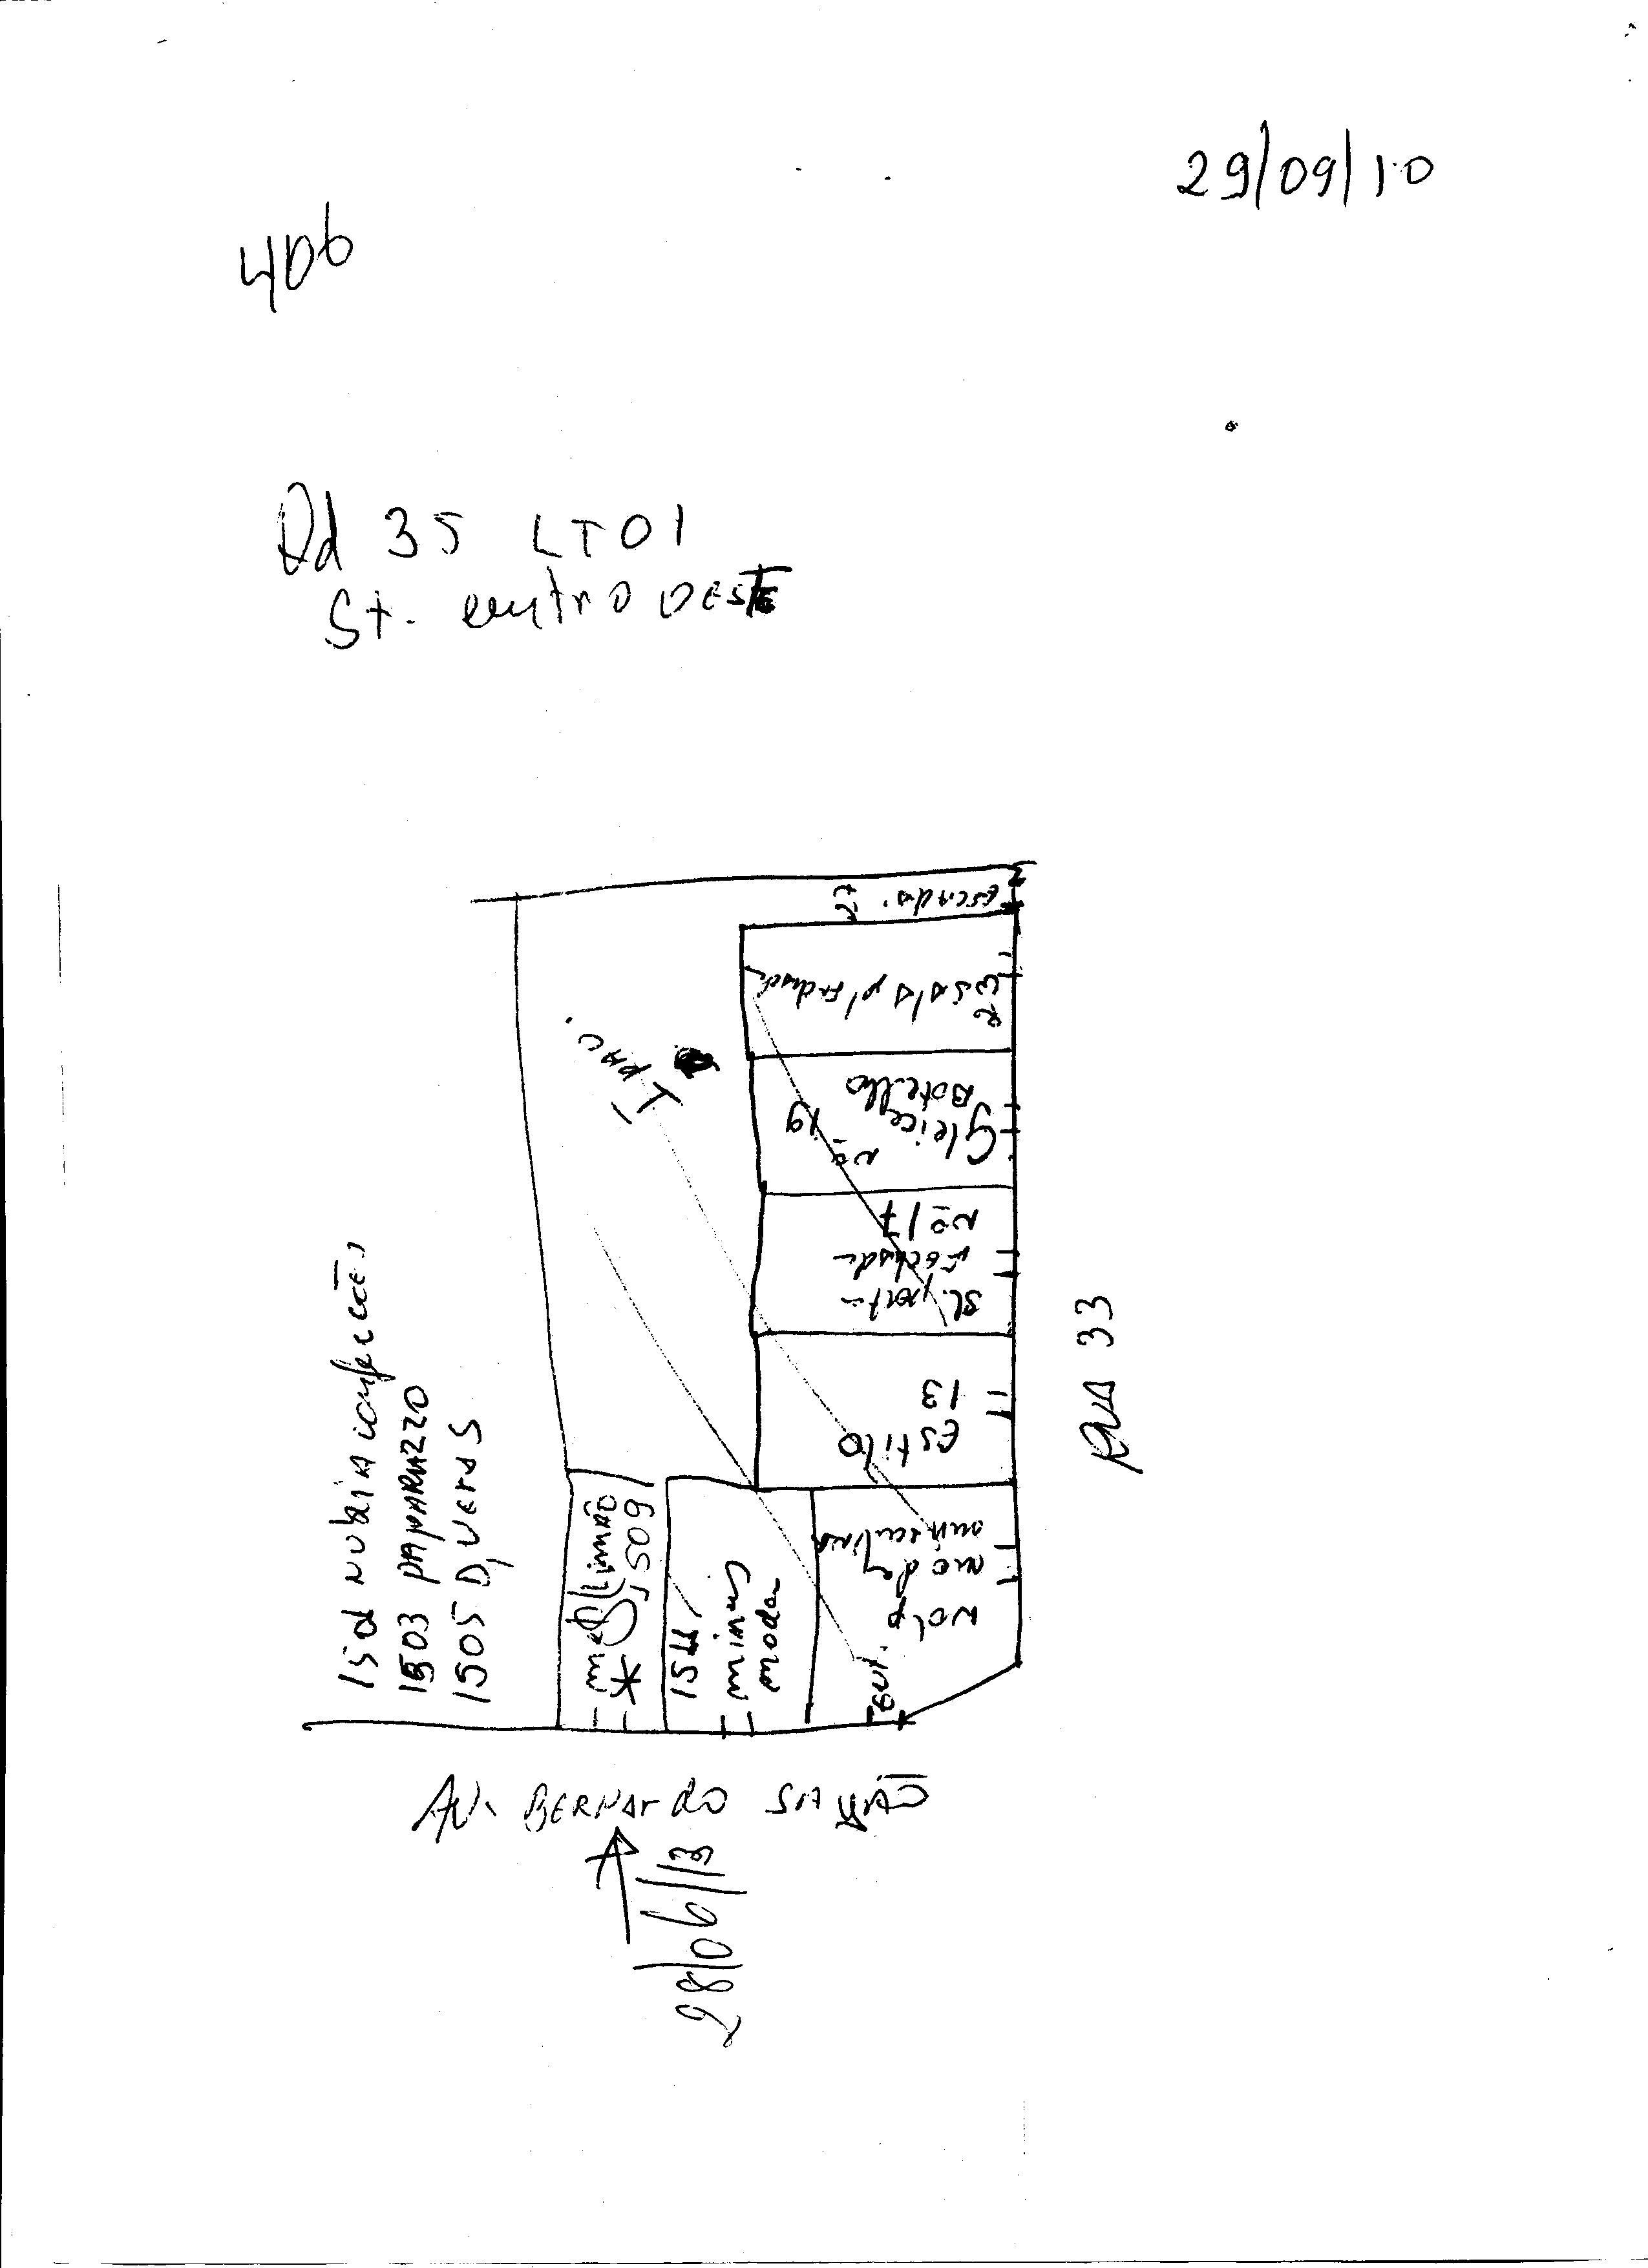 29/09/10
406
Qd 35 LT 01
St. centro OESTE
escada
p/
Gleice
Botelho
Nº 19
Sl.
Fechada
Nº 17
Estilo
13
moda
masculina
1501 NUBIA confecções
1503 PAPARAZZO
1505 DiVeras
mel&limão
* 1509
1511
minus
moda
RUA 33
AV. BERNARDO SAYÃO
28/06/13